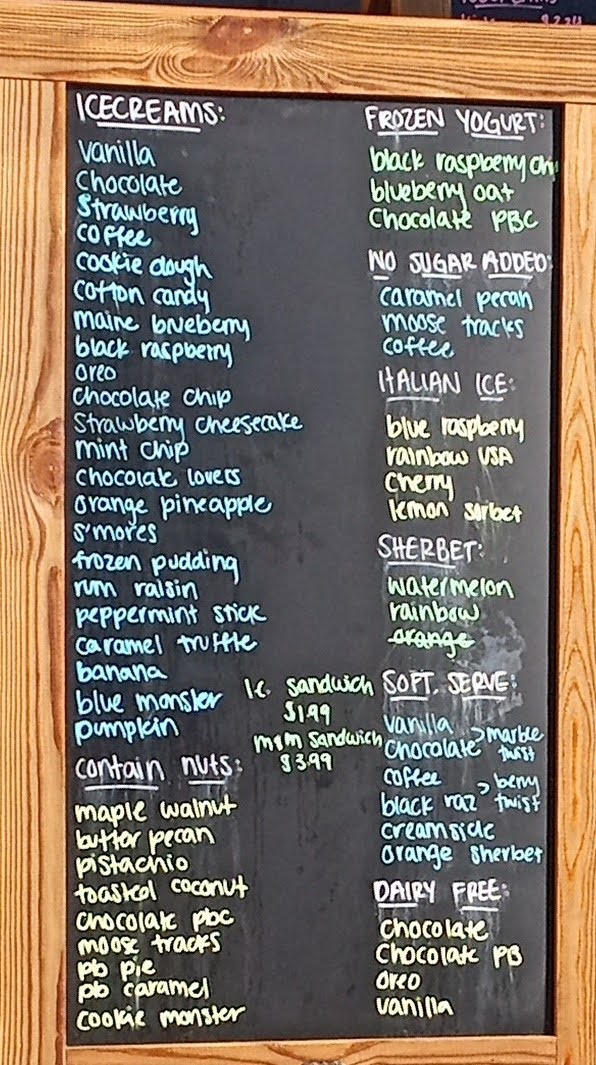 ICECREAMS:
vanilla
chocolate
strawberry
coffee
cookie dough
cotton candy
maine blueberry
black raspberry
oreo
chocolate chip
strawberry cheesecake
mint chip
chocolate lovers
orange pineapple
s'mores
frozen pudding
rum raisin
peppermint stick
caramel truffle
banana
blue monster
pumpkin
I.C. sandwich
$1.99
m&m sandwich
$3.99
contain nuts:
maple walnut
butter pecan
pistachio
toasted coconut
chocolate pbc
moose tracks
pb pie
pb caramel
cookie monster
FROZEN YOGURT:
black raspberry chi
blueberry oat
chocolate PBC
NO SUGAR ADDED:
caramel pecan
moose tracks
coffee
ITALIAN ICE:
blue raspberry
rainbow USA
cherry
lemon sorbet
SHERBET:
watermelon
rainbow
orange
SOFT. SERVE:
vanilla > marble
chocolate twist
coffee > berry
black raz twist
creamside
orange sherbet
DAIRY FREE:
chocolate
chocolate PB
oreo
vanilla